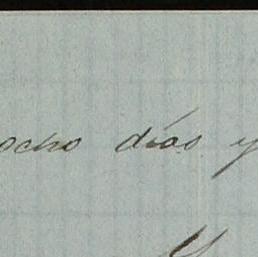 ocho días y